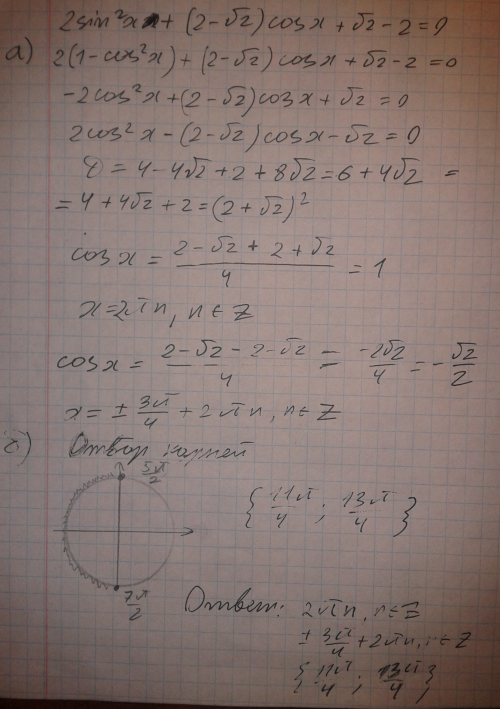 2sin²x + (2-√2)cosx + √2 - 2 = 0
а) 2(1-cos²x) + (2-√2)cosx + √2 - 2 = 0
-2cos²x + (2-√2)cosx + √2 = 0
2cos²x - (2-√2)cosx - √2 = 0
D = 4 - 4√2 + 2 + 8√2 = 6 + 4√2 =
= 4 + 4√2 + 2 = (2 + √2)²
cosx = (2 - √2 + 2 + √2)/4 = 1
x = 2πn, n ∈ Z
cosx = (2 - √2 - 2 - √2)/4 = -2√2/4 = -√2/2
x = ± 3π/4 + 2πn, n ∈ Z
б) Отбор корней
5π/2
{11π/4 ; 13π/4}
7π/2
Ответ: 2πn, n ∈ Z
± 3π/4 + 2πn, n ∈ Z
{11π/4 ; 13π/4}